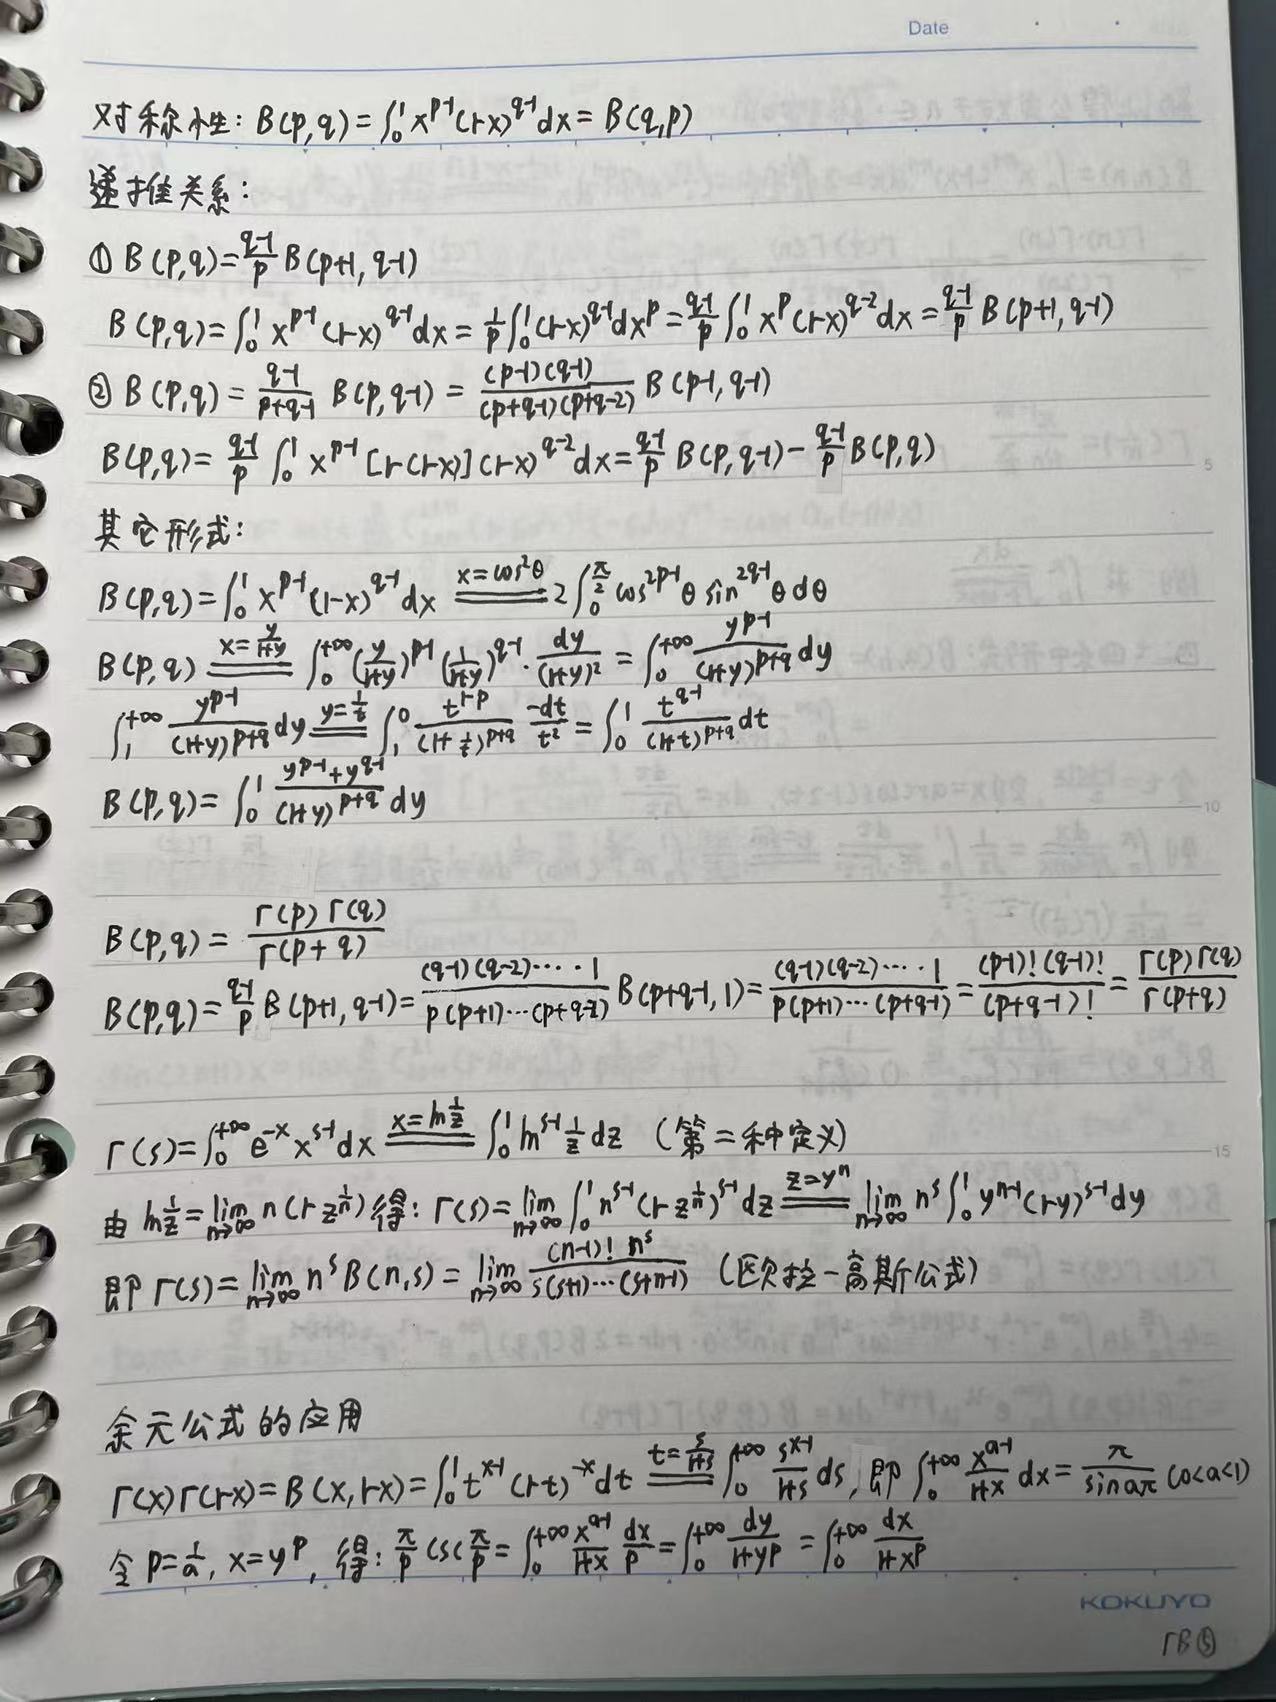 Date
对称性: B(p,q)=∫₀¹x^{p-1}(1-x)^{q-1}dx=B(q,p)
递推关系:
① B(p,q)=\frac{q-1}{p}B(p+1,q-1)
B(p,q)=∫₀¹x^{p-1}(1-x)^{q-1}dx=\frac{1}{p}∫₀¹(1-x)^{q-1}dx^p=\frac{q-1}{p}∫₀¹x^p(1-x)^{q-2}dx=\frac{q-1}{p}B(p+1,q-1)
② B(p,q)=\frac{q-1}{p+q-1}B(p,q-1)=\frac{(p-1)(q-1)}{(p+q-1)(p+q-2)}B(p-1,q-1)
B(p,q)=\frac{q-1}{p}∫₀¹x^{p-1}[1-(1-x)](1-x)^{q-2}dx=\frac{q-1}{p}B(p,q-1)-\frac{q-1}{p}B(p,q)
其它形式:
B(p,q)=∫₀¹x^{p-1}(1-x)^{q-1}dx \xlongequal{x=cos²θ} 2∫_0^{\frac{π}{2}}cos^{2p-1}θsin^{2q-1}θdθ
B(p,q) \xlongequal{x=\frac{y}{1+y}} ∫_0^{+∞}(\frac{y}{1+y})^{p-1}(\frac{1}{1+y})^{q-1}·\frac{dy}{(1+y)²}=∫_0^{+∞}\frac{y^{p-1}}{(1+y)^{p+q}}dy
∫_1^{+∞}\frac{y^{p-1}}{(1+y)^{p+q}}dy \xlongequal{y=\frac{1}{t}} ∫_1^0\frac{t^{1-p}}{(1+\frac{1}{t})^{p+q}}\frac{-dt}{t²}=∫_0^1\frac{t^{q-1}}{(1+t)^{p+q}}dt
B(p,q)=∫_0^1\frac{y^{p-1}+y^{q-1}}{(1+y)^{p+q}}dy
B(p,q)=\frac{Γ(p)Γ(q)}{Γ(p+q)}
B(p,q)=\frac{q-1}{p}B(p+1,q-1)=\frac{(q-1)(q-2)⋯·1}{p(p+1)⋯(p+q-2)}B(p+q-1,1)=\frac{(q-1)(q-2)⋯·1}{p(p+1)⋯(p+q-1)}=\frac{(p-1)!(q-1)!}{(p+q-1)!}=\frac{Γ(p)Γ(q)}{Γ(p+q)}
Γ(s)=∫_0^{+∞}e^{-x}x^{s-1}dx \xlongequal{x=ln\frac{1}{z}} ∫_0^1ln^{s-1}\frac{1}{z}dz (第二种定义)
由 ln\frac{1}{z}=\lim_{n→∞}n(1-z^{\frac{1}{n}})得: Γ(s)=\lim_{n→∞}∫_0^1n^{s-1}(1-z^{\frac{1}{n}})^{s-1}dz \xlongequal{z=y^n} \lim_{n→∞}n^s∫_0^1y^{n-1}(1-y)^{s-1}dy
即 Γ(s)=\lim_{n→∞}n^sB(n,s)=\lim_{n→∞}\frac{(n-1)!n^s}{s(s+1)⋯(s+n-1)} (欧拉-高斯公式)
余元公式的应用
Γ(x)Γ(1-x)=B(x,1-x)=∫_0^1t^{x-1}(1-t)^{-x}dt \xlongequal{t=\frac{s}{1+s}} ∫_0^{+∞}\frac{s^{x-1}}{1+s}ds, 即 ∫_0^{+∞}\frac{x^{a-1}}{1+x}dx=\frac{π}{sinaπ}(0<a<1)
令 p=\frac{1}{a}, x=y^p, 得: \frac{π}{p}csc\frac{π}{p}=∫_0^{+∞}\frac{x^{a-1}}{1+x}\frac{dx}{p}=∫_0^{+∞}\frac{dy}{1+y^p}=∫_0^{+∞}\frac{dx}{1+x^p}
KOKUYO
ΓB⑤
5
10
15